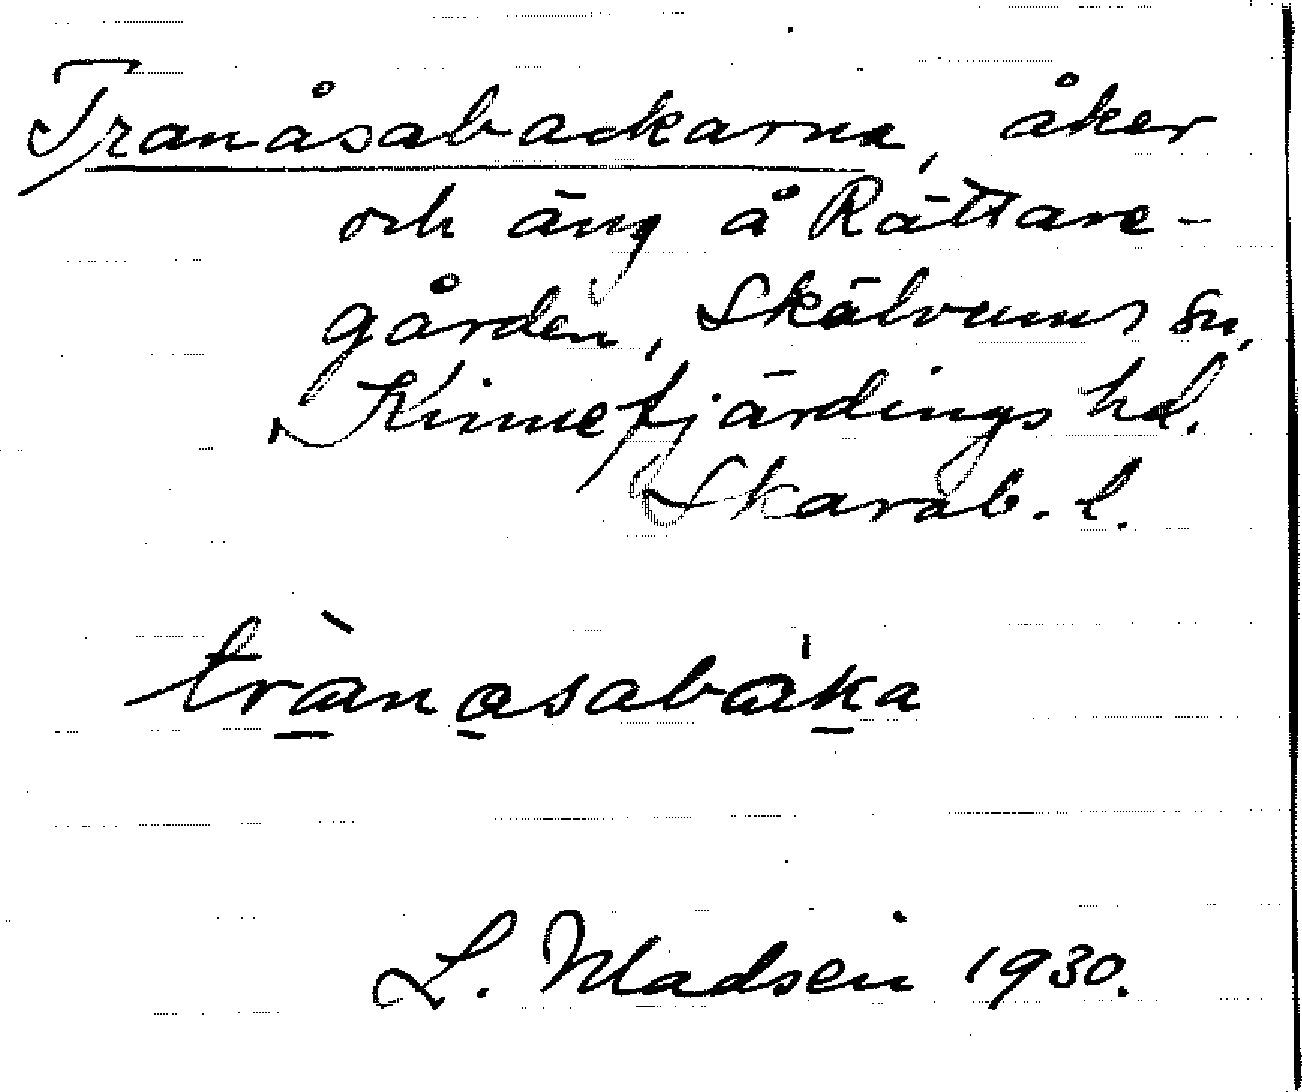 Tranåsabackarna, åker
och äng å Rättare-
gården, Skälvums sn,
Kinnefjärdings hd.
Skarab. l.
trànåsabáka
L. Madsen 1930.